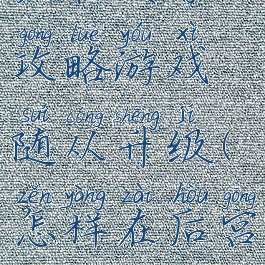 gōng lüè yóu xì
攻略游戏
suí cóng shēng jí
随从升级(
zěn yàng zài hòu gōng
怎样在后宫